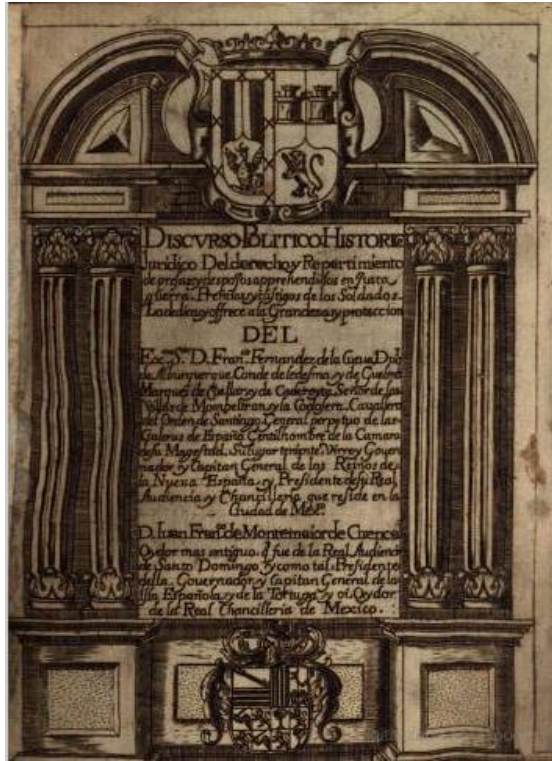 DISCVRSO·POLITICO·HISTORIC
Juridico Del derecho y Repartimiento
de presas y despojos apprehendidos en justa
guerra. Premios y castigos de los Soldados.
Lo dedica y offrece a la Grandeza y proteccion
DEL
Exc.mo S.or D. Fran.co Fernandez de la Cueva Duq
de Alburquerque, Conde de Ledesma, y de Guelma
Marques de Cuellar, y de Cadereyta, Señor de las
Villas de Mombeltran, y la Codosera. Cavallero
del Orden de Santiago, General perpetuo de las
Galeras de España, Gentilhombre de la Camara
de su Magestad. Su lugar teniente, Virrey Gover
nador, y Capitan General de los Reinos de
la Nueva España, y Presidente de su Real
Audiencia, y Chancilleria que reside en la
Ciudad de Mex.co
D. Iuan Fran.co de Montemaior de Cuenca
Oydor mas antiguo, q fue de la Real Audienci
de Santo Domingo, y como tal, Presidente
della, Governador, y Capitan General de la
Isla Española, y de la Tortuga, y oi, Oydor
de la Real Chancilleria de Mexico.